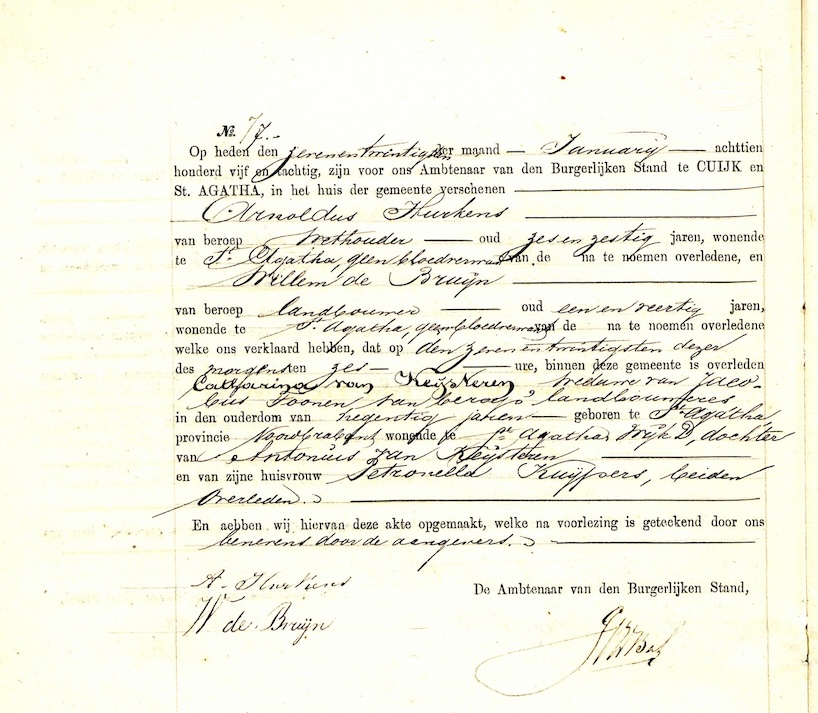 No. 7.
Op heden den zevenentwintigsten der maand — Januarij — achttien
honderd vijf en tachtig, zijn voor ons Ambtenaar van den Burgerlijken Stand te CUIJK en
St. AGATHA, in het huis der gemeente verschenen
Arnoldus Hurkens
van beroep Wethouder — oud zes en zestig jaren, wonende
te St. Agatha, geen bloedverwant van de na te noemen overledene, en
Willem de Bruijn
van beroep landbouwer — oud een en veertig jaren,
wonende te St. Agatha, geen bloedverwant van de na te noemen overledene
welke ons verklaard hebben, dat op den zevenentwintigsten dezer
des morgens ten zes — ure, binnen deze gemeente is overleden
Catharina van Keijsteren weduwe van Jaco-
bus Toonen van beroep landbouweres
in den ouderdom van negentig jaren — geboren te St. Agatha
provincie Noordbrabant wonende te St. Agatha, Wijk D, dochter
van Antonius van Keijsteren
en van zijne huisvrouw Petronella Kuijpers, beiden
overleden.
En aebben wij hiervan deze akte opgemaakt, welke na voorlezing is geteekend door ons
benevens door de aangevers.
A. Hurkens
De Ambtenaar van den Burgerlijken Stand,
W de Bruijn